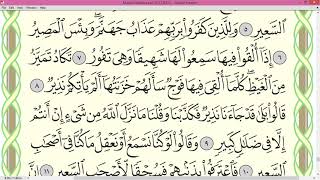 ٱلسَّعِيرِ ٥ وَلِلَّذِينَ كَفَرُوا۟ بِرَبِّهِمْ عَذَابُ جَهَنَّمَ ۖ وَبِئْسَ ٱلْمَصِيرُ
٦ إِذَآ أُلْقُوا۟ فِيهَا سَمِعُوا۟ لَهَا شَهِيقًا وَهِىَ تَفُورُ ٧ تَكَادُ تَمَيَّزُ
مِنَ ٱلْغَيْظِ ۖ كُلَّمَآ أُلْقِىَ فِيهَا فَوْجٌ سَأَلَهُمْ خَزَنَتُهَآ أَلَمْ يَأْتِكُمْ نَذِيرٌ ٨
قَالُوا۟ بَلَىٰ قَدْ جَآءَنَا نَذِيرٌ فَكَذَّبْنَا وَقُلْنَا مَا نَزَّلَ ٱللَّهُ مِن شَىْءٍ إِنْ أَنتُمْ
إِلَّا فِى ضَلَٰلٍ كَبِيرٍ ٩ وَقَالُوا۟ لَوْ كُنَّا نَسْمَعُ أَوْ نَعْقِلُ مَا كُنَّا فِىٓ أَصْحَٰبِ
ٱلسَّعِيرِ ١٠ فَٱعْتَرَفُوا۟ بِذَنۢبِهِمْ فَسُحْقًا لِّأَصْحَٰبِ ٱلسَّعِيرِ ١١ إِنَّ